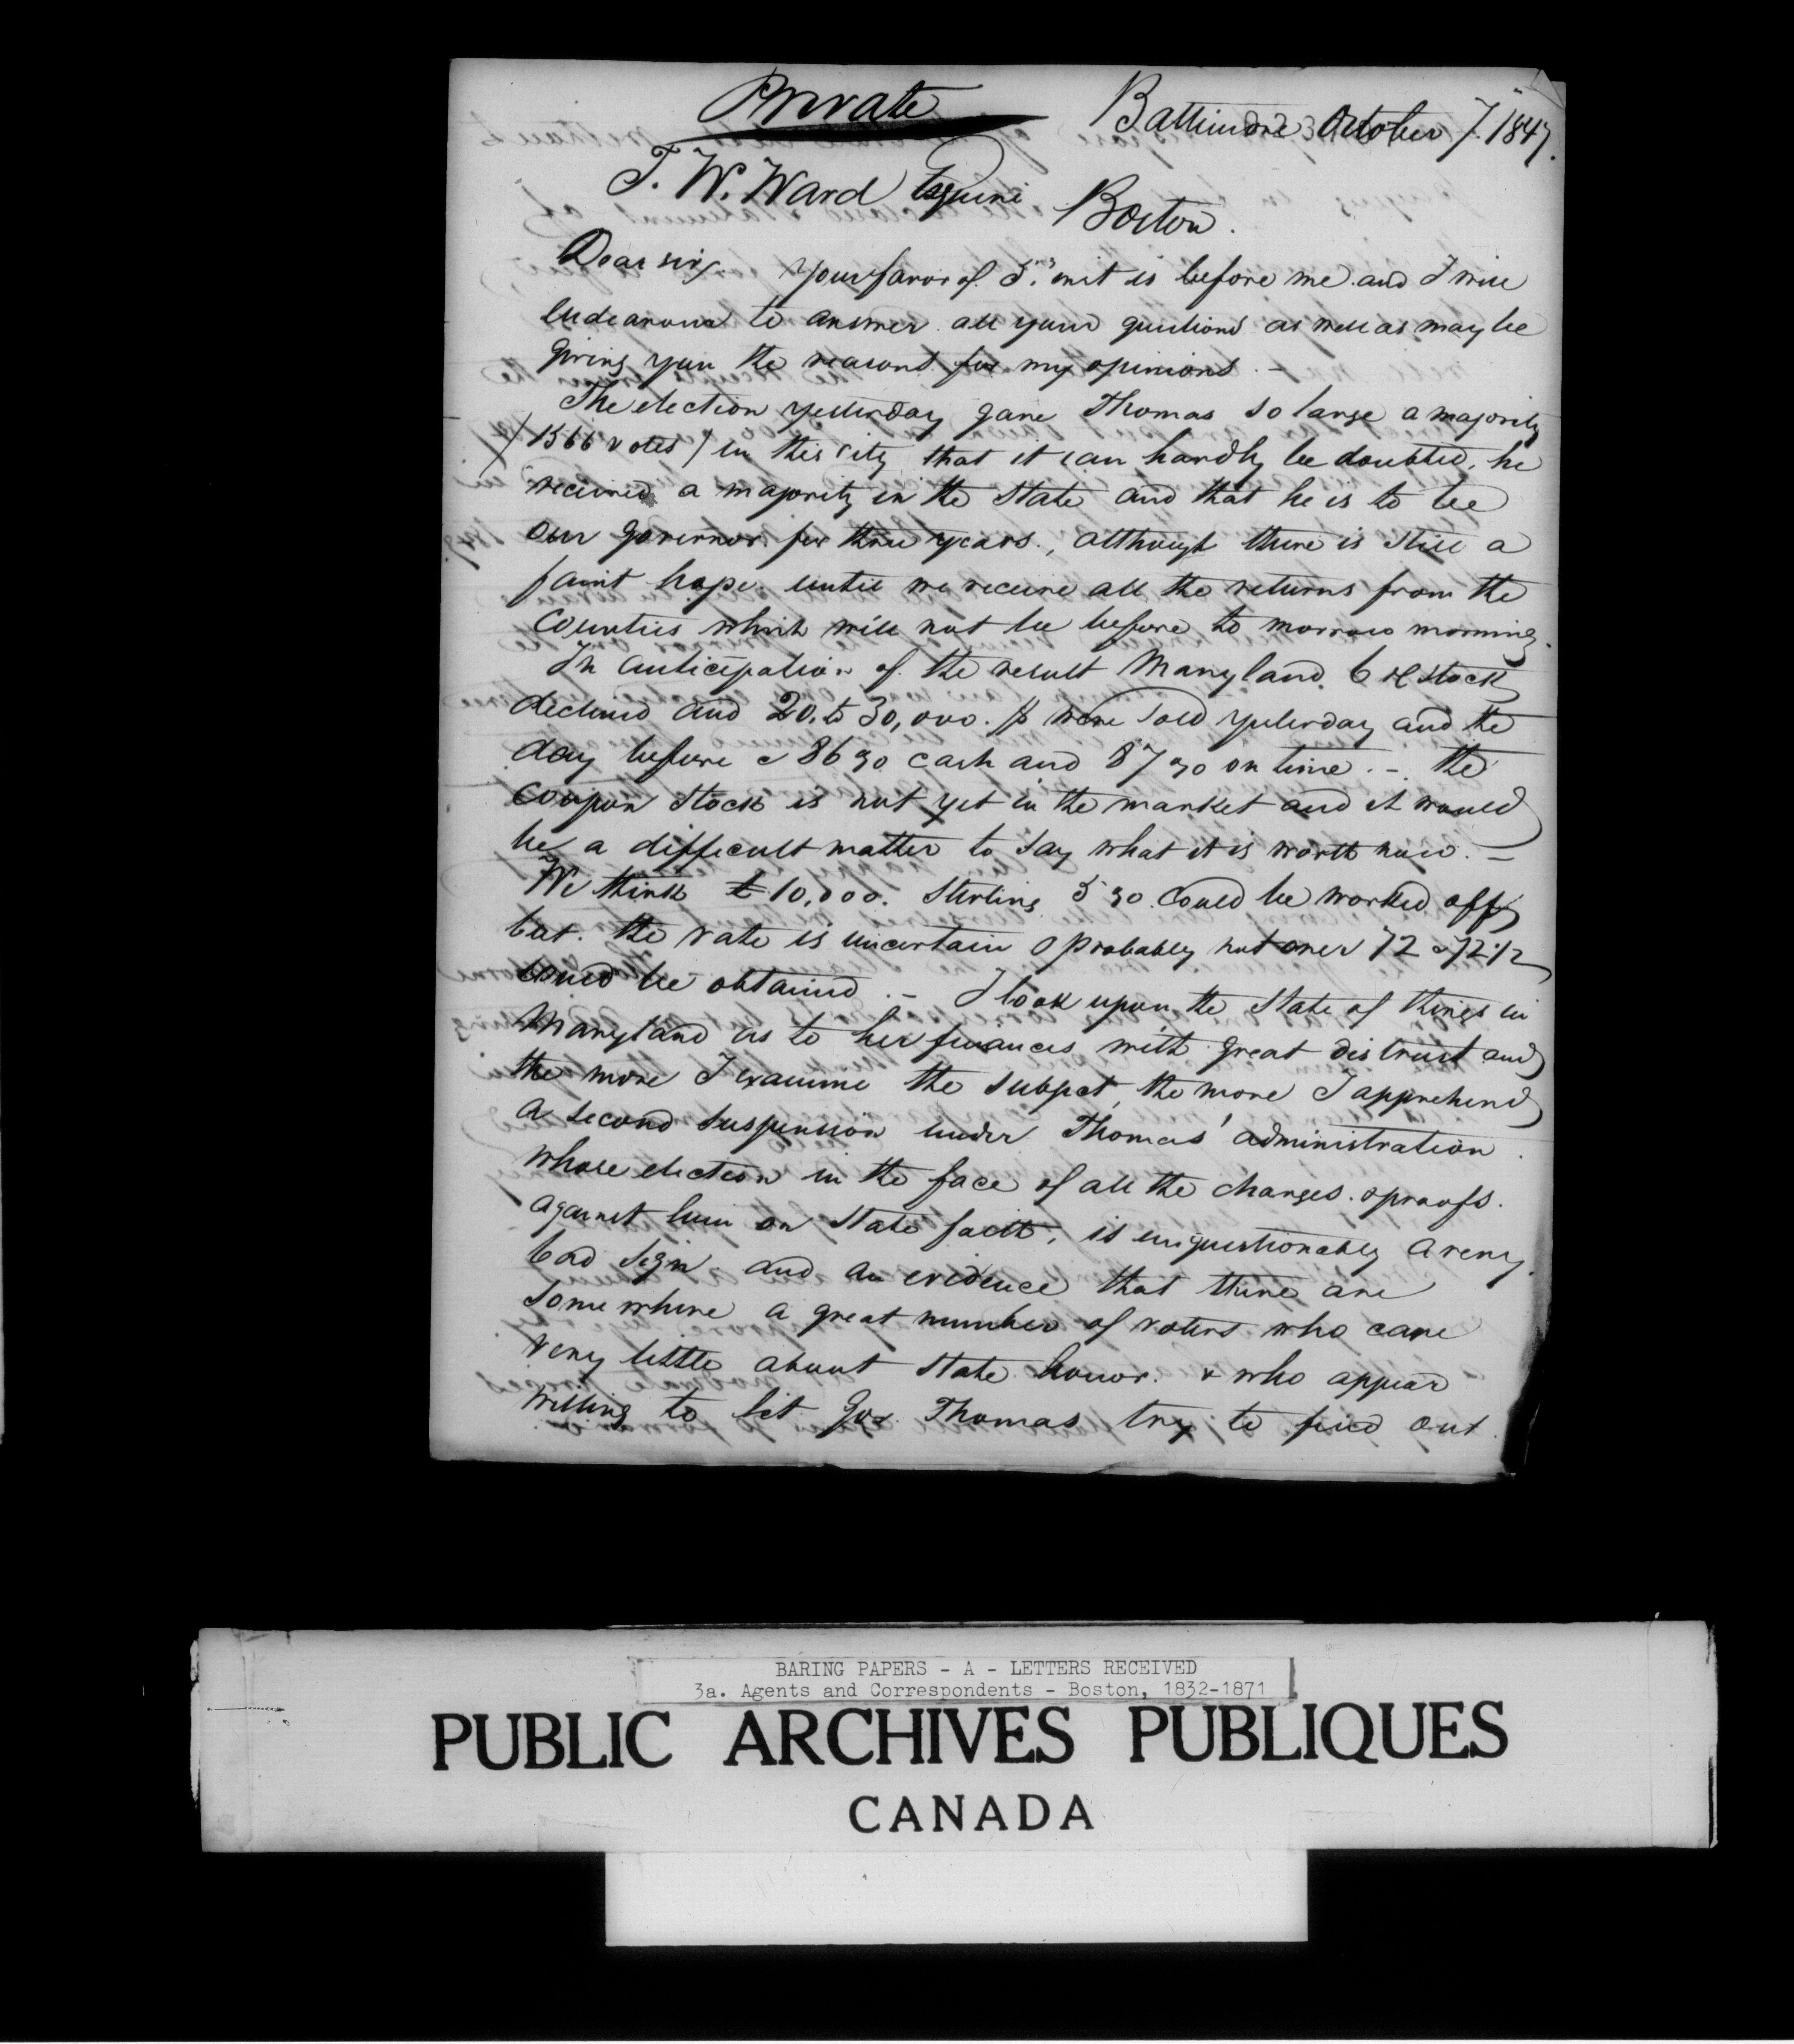 Private
Baltimore October 7. 1847.
T. W. Ward Esquire
Boston.
Dear sir, Your favor of 5. inst is before me and I will
endeavour to answer all your questions as well as may be
giving you the reasons for my opinions. -
The election yesterday gave Thomas so large a majority
/1566 votes/ in this city that it can hardly be doubted, he
received a majority in the State and that he is to be
our governor for three years, although there is still a
faint hope until we receive all the returns from the
Counties which will not be before to morrow morning.
In anticipation of the result Maryland 6 % stock
declined and 20. to 30,000. $ were sold yesterday and the
day before a 86 % cash and 87 % on time. - the
Coupon Stock is not yet in the market and it would
be a difficult matter to say what it is worth now. -
We think £10,000. Sterling 5 % could be worked off
but the rate is uncertain & probably not over 72 a 72 1/2
could be obtained. - I look upon the State of things in
Maryland as to her finances with great distrust and
the more I examine the subject, the more I apprehend
a second suspension under Thomas' administration.
whose election in the face of all the charges & proofs.
against him on State faith, is unquestionably a very
bad sign and an evidence that there are
somewhere a great number of voters who care
very little about State honor. & who appear
willing to let Gov. Thomas try to find out
BARING PAPERS - A - LETTERS RECEIVED
3a. Agents and Correspondents - Boston, 1832-1871
PUBLIC ARCHIVES PUBLIQUES
CANADA